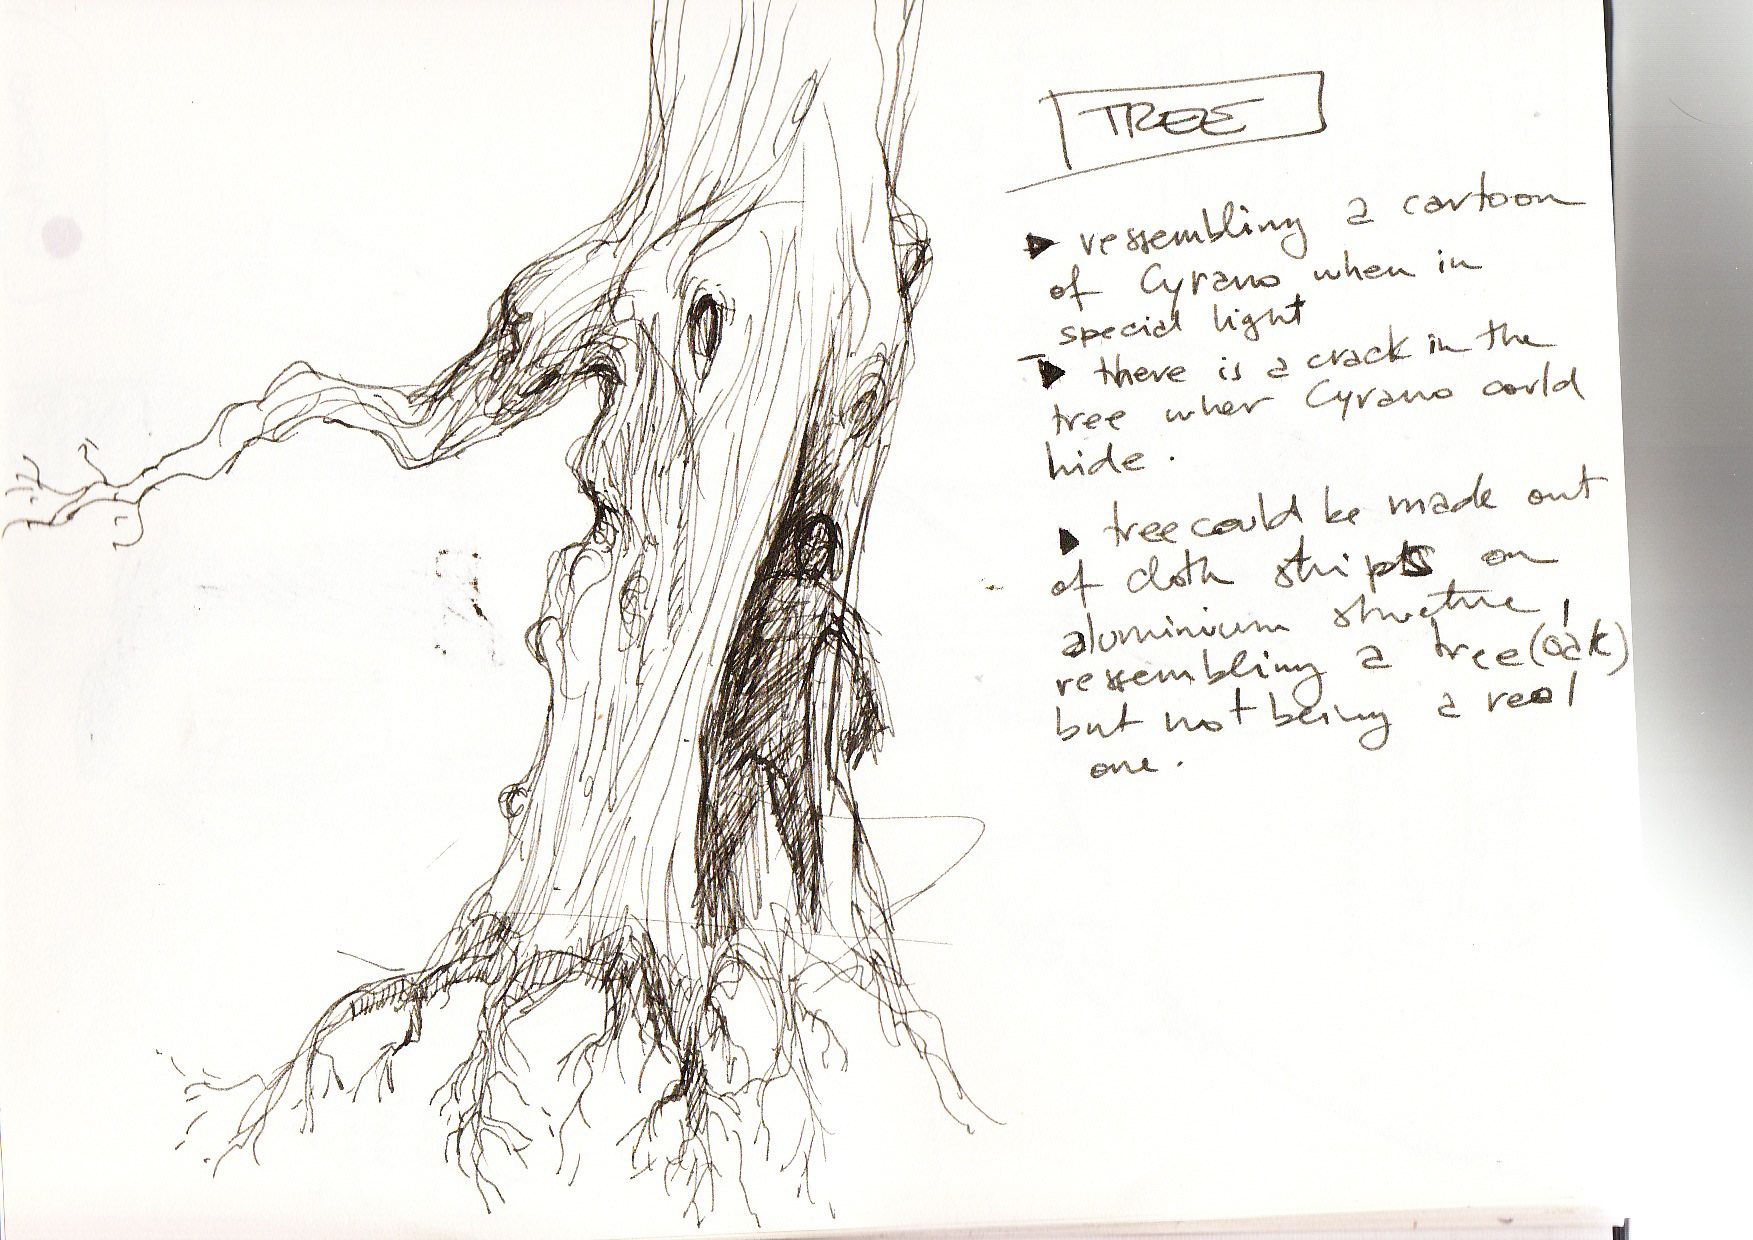 TREE
▶ ressembling a cartoon
of Cyrano when in
special light
▶ there is a crack in the
tree wher Cyrano could
hide.
▶ tree could be made out
of cloth strips on
aluminium structure,
ressembling a tree (oak)
but not being a real
one.